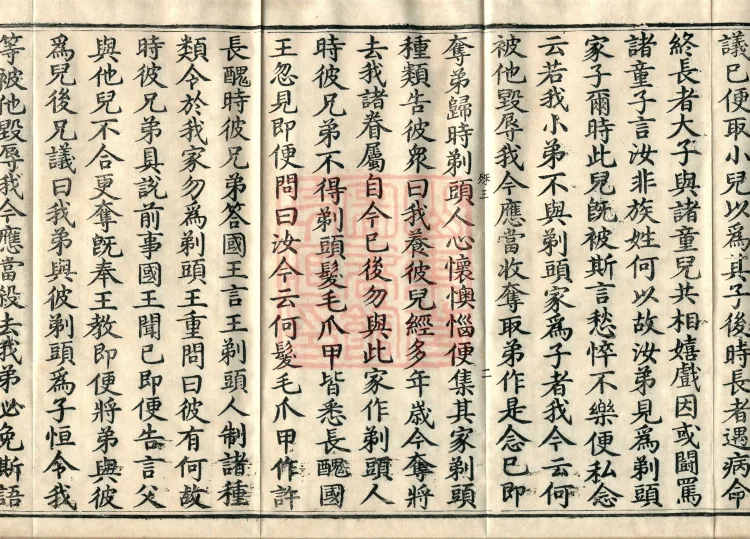 議已便取小兒以爲其子後時長者遇病命
終長者大子與諸童兒共相嬉戲因或鬪罵
諸童子言汝非族姓何以故汝弟見爲剃頭
家子爾時此兒旣被斯言愁悴不樂便私念
云若我小弟不與剃頭家爲子者我今云何
被他毀辱我今應當收奪取弟作是念已即
奪弟歸時剃頭人心懷懊惱便集其家剃頭
種類告彼衆曰我養彼兒經多年歲今奪將
去我諸眷屬自今已後勿與此家作剃頭人
時彼兄弟不得剃頭髮毛爪甲皆悉長醜國
王忽見即便問曰汝今云何髮毛爪甲作許
長醜時彼兄弟答國王言王剃頭人制諸種
類令於我家勿爲剃頭王重問曰彼有何故
時彼兄弟具說前事國王聞已即便告言父
與他兒不合更奪旣奉王教即便將弟與彼
爲兒後兄議曰我弟與彼剃頭爲子恒令我
等被他毀辱我今應當殺去我弟必免斯語